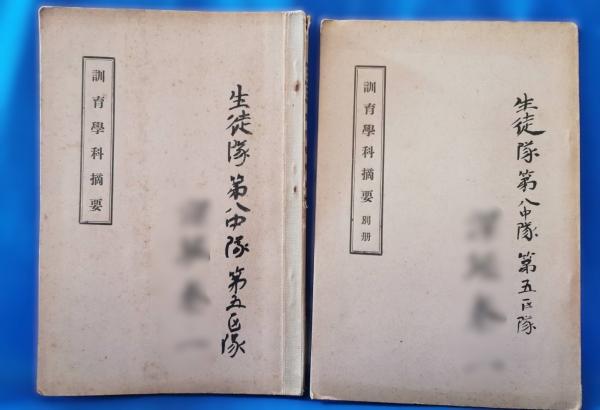 訓育學科摘要
生徒隊第八中隊第五区隊
訓育學科摘要 別册
生徒隊第八中隊第五区隊